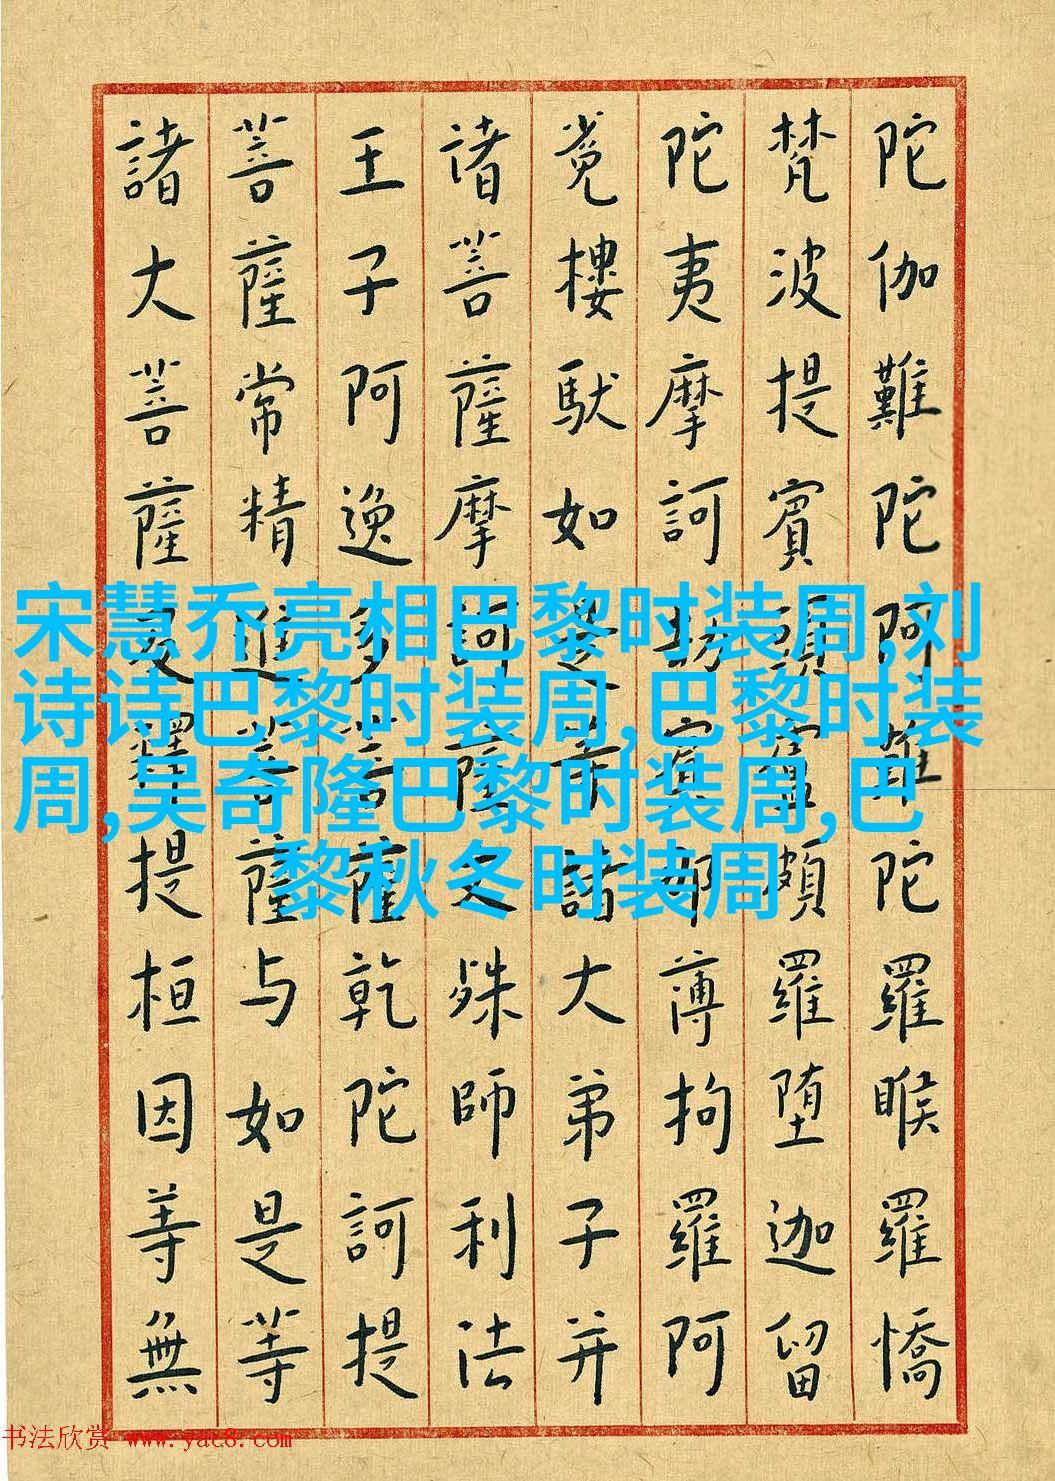 陀伽難陀阿難陀羅睺羅憍
梵波提賓頭盧頗羅堕迦留
陀夷摩訶劫賓那薄拘羅阿
㝹樓馱如是等諸大弟子并
诸菩薩摩訶薩文殊師利法
王子阿逸多菩薩乾陀訶提
菩薩常精進菩薩与如是等
諸大菩薩及釋提桓因等無
宋慧乔亮相巴黎时装周,刘
诗诗巴黎时装周,巴黎时装
周,吴奇隆巴黎时装周,巴
黎秋冬时装周
书法欣赏 www.yac8.com